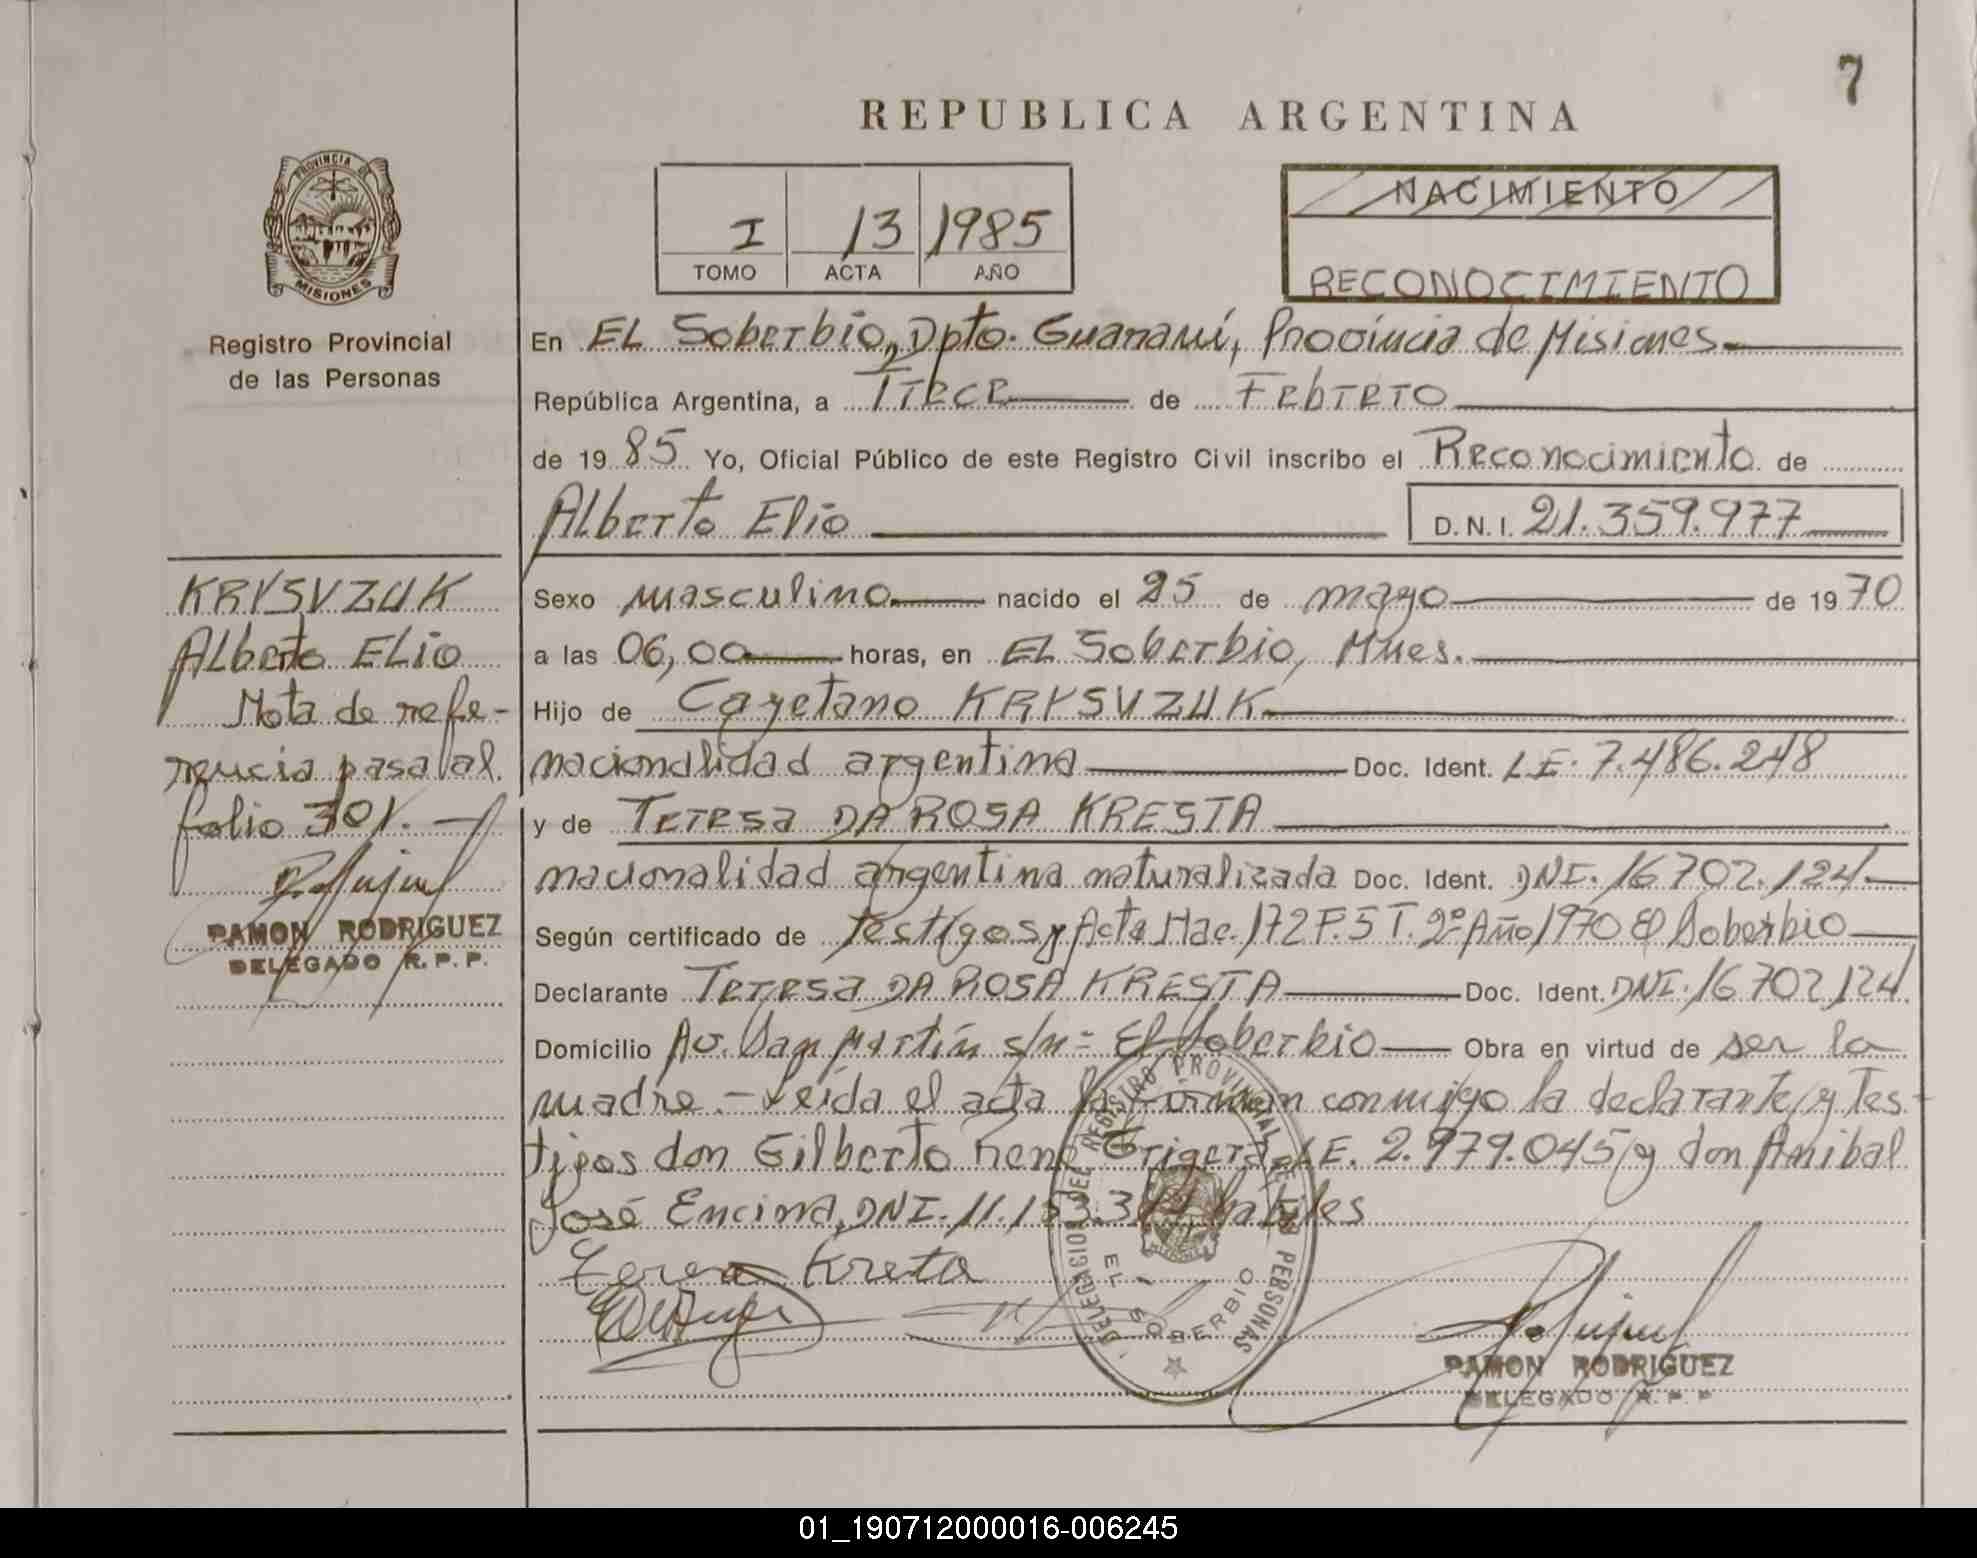 7
REPUBLICA ARGENTINA
PROVINCIA DE
MISIONES
Registro Provincial
de las Personas
I 13 1985
TOMO ACTA AÑO
NACIMIENTO
RECONOCIMIENTO
En EL Soberbio, Dpto. Guaraní, Provincia de Misiones
República Argentina, a Trece de Febrero
de 1985 Yo, Oficial Público de este Registro Civil inscribo el Reconocimiento de
Alberto Elio D.N.I. 21.359.977
KRYSVZUK
Alberto ELio
Nota de refe-
rencia pasa al
folio 301.-
RAMON RODRIGUEZ
DELEGADO R.P.P.
Sexo masculino nacido el 25 de mayo de 1970
a las 06,00 horas, en EL Soberbio, Mnes.
Hijo de Cayetano KRYSVZUK
nacionalidad argentina Doc. Ident. L.E. 7.486.248
y de Teresa DA ROSA KRESTA
nacionalidad argentina naturalizada Doc. Ident. DNI. 16.702.124.
Según certificado de testigos y Acta Nac. 172 F.5 T. 2º Año 1970 El Soberbio
Declarante Teresa DA ROSA KRESTA Doc. Ident. DNI. 16.702.124.
Domicilio Av. San Martín s/n - El Soberbio Obra en virtud de ser la
madre.- Leída el acta la firman conmigo la declarante y tes-
tigos don Gilberto René Trigera, L.E. 2.979.045 y don Anibal
José Encina, DNI. 11. hábiles
Teresa Kreta
DELEGACION DEL REGISTRO PROVINCIAL DE LAS PERSONAS
EL SOBERBIO
RAMON RODRIGUEZ
DELEGADO R.P.P
01_190712000016-006245